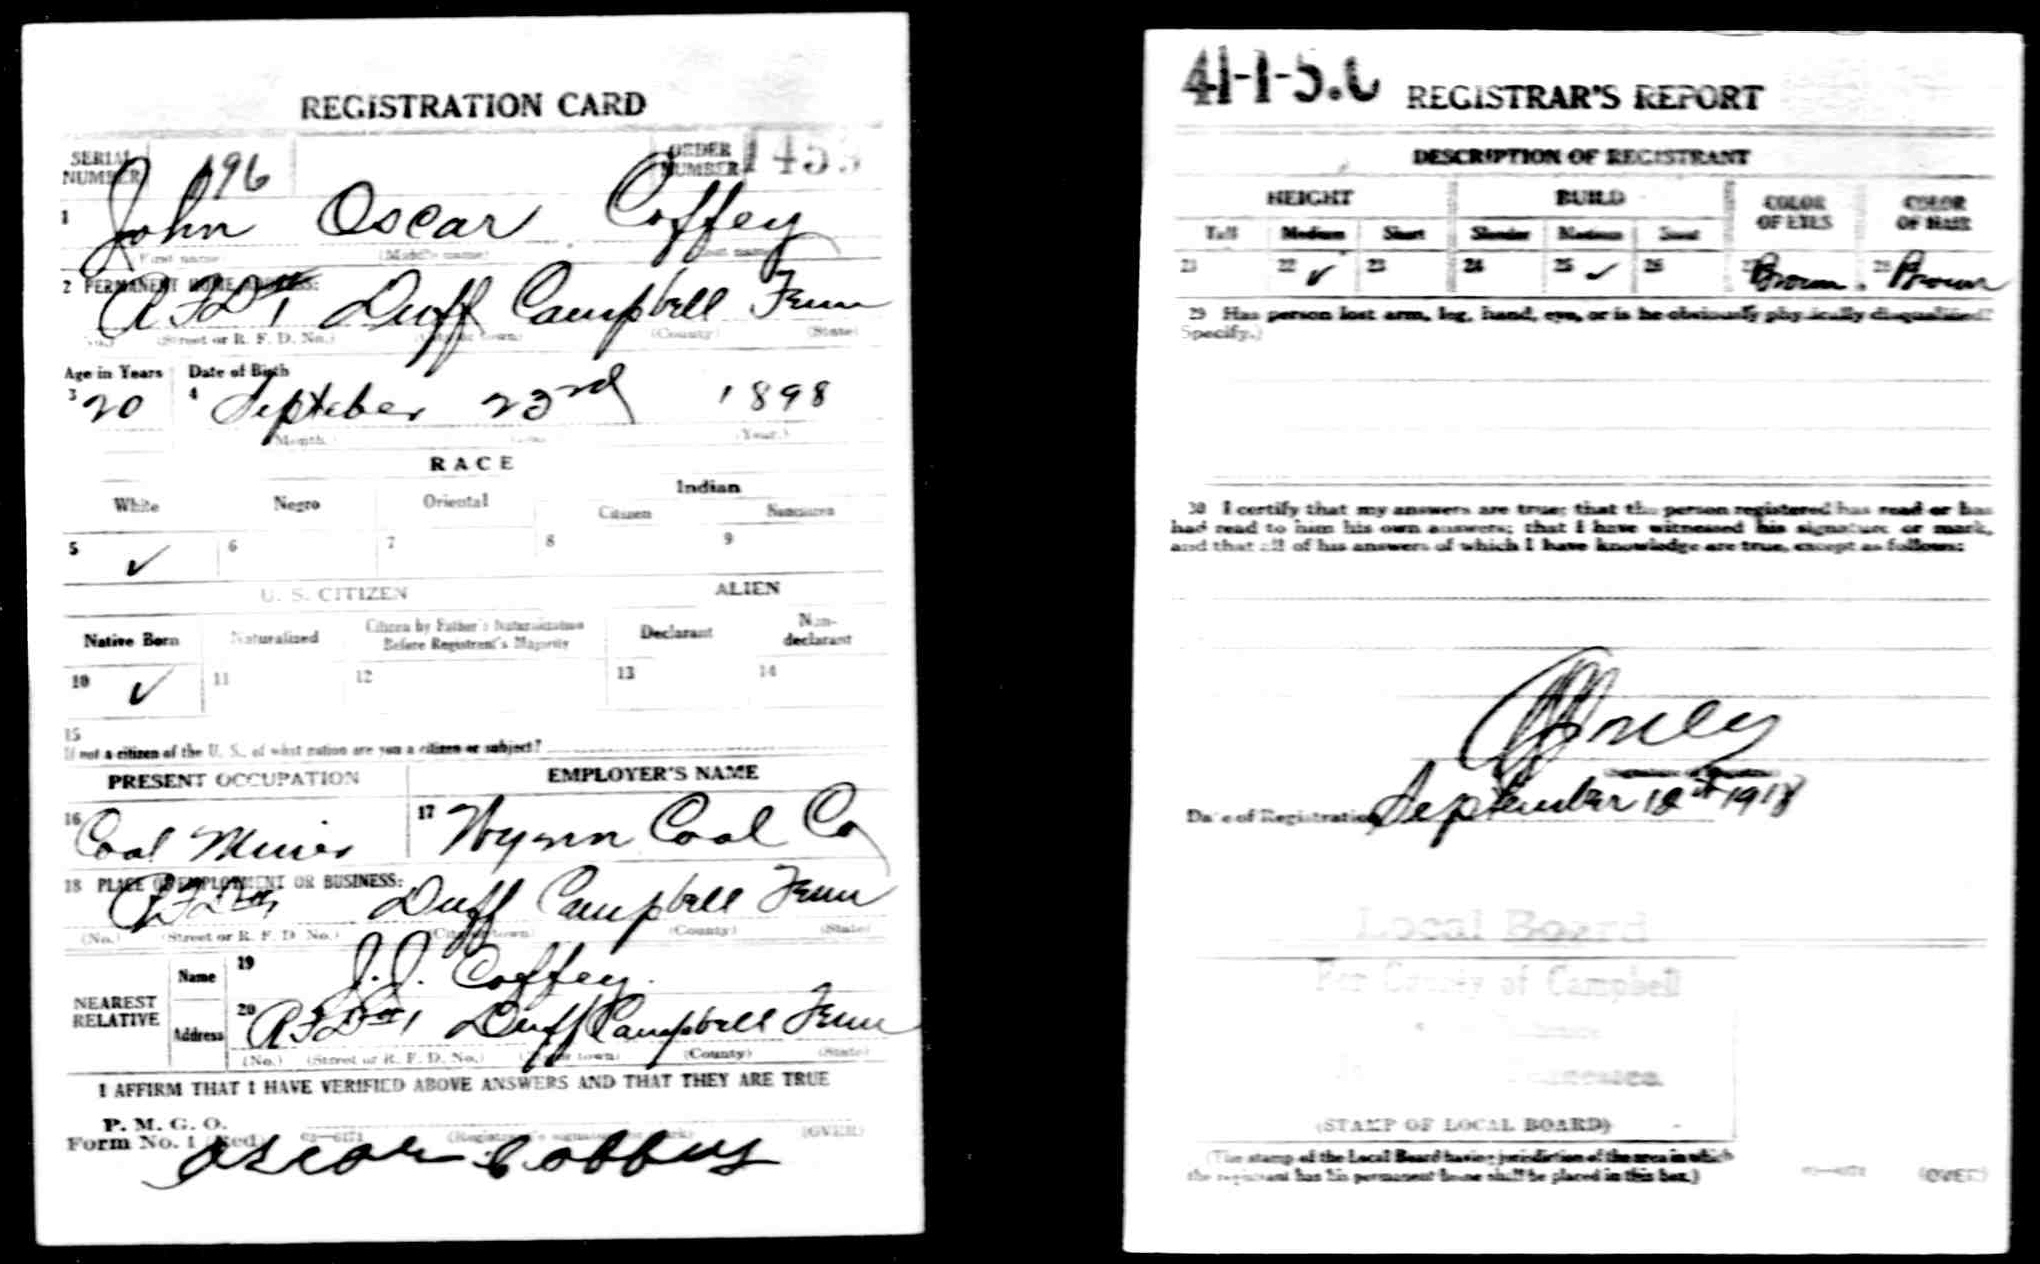 REGISTRATION CARD
SERIAL NUMBER 196 ORDER NUMBER 1453
1 John Oscar Coffey
(First name) (Middle name) (Last name)
2 PERMANENT HOME ADDRESS:
RFD #1 Duff Campbell Tenn
(No.) (Street or R. F. D. No.) (City or town) (County) (State)
Age in Years Date of Birth
3 20 4 September 23rd 1898
(Month.) (Day.) (Year.)
RACE
White Negro Oriental Indian
Citizen Noncitizen
5 ✓ 6 7 8 9
U. S. CITIZEN ALIEN
Native Born Naturalized Citizen by Father's Naturalization Before Registrant's Majority Declarant Non-declarant
10 ✓ 11 12 13 14
15
If not a citizen of the U. S., of what nation are you a citizen or subject?
PRESENT OCCUPATION EMPLOYER'S NAME
16 Coal Miner 17 Wynn Coal Co
18 PLACE OF EMPLOYMENT OR BUSINESS:
Duff Campbell Tenn
(No.) (Street or R. F. D. No.) (City or town) (County) (State)
NEAREST RELATIVE Name 19 J. J. Coffey.
Address 20 RFD #1 Duff Campbell Tenn
(No.) (Street or R. F. D. No.) (City or town) (County) (State)
I AFFIRM THAT I HAVE VERIFIED ABOVE ANSWERS AND THAT THEY ARE TRUE
P. M. G. O.
Form No. 1 (Red) 03—6171 (Registrant's signature or mark) (OVER)
41-1-5.C REGISTRAR'S REPORT
DESCRIPTION OF REGISTRANT
HEIGHT BUILD COLOR OF EYES COLOR OF HAIR
Tall Medium Short Slender Medium Stout
21 22 ✓ 23 24 25 ✓ 26 27 Brown 28 Brown
29 Has person lost arm, leg, hand, eye, or is he obviously physically disqualified?
(Specify.)
30 I certify that my answers are true; that the person registered has read or has
had read to him his own answers; that I have witnessed his signature or mark,
and that all of his answers of which I have knowledge are true, except as follows:
(Signature of Registrar)
Date of Registration September 12th 1918
Local Board
For County of Campbell
Tennessee
(STAMP OF LOCAL BOARD)
(The stamp of the Local Board having jurisdiction of the area in which
the registrant has his permanent home shall be placed in this box.)
03—6171 (OVER)